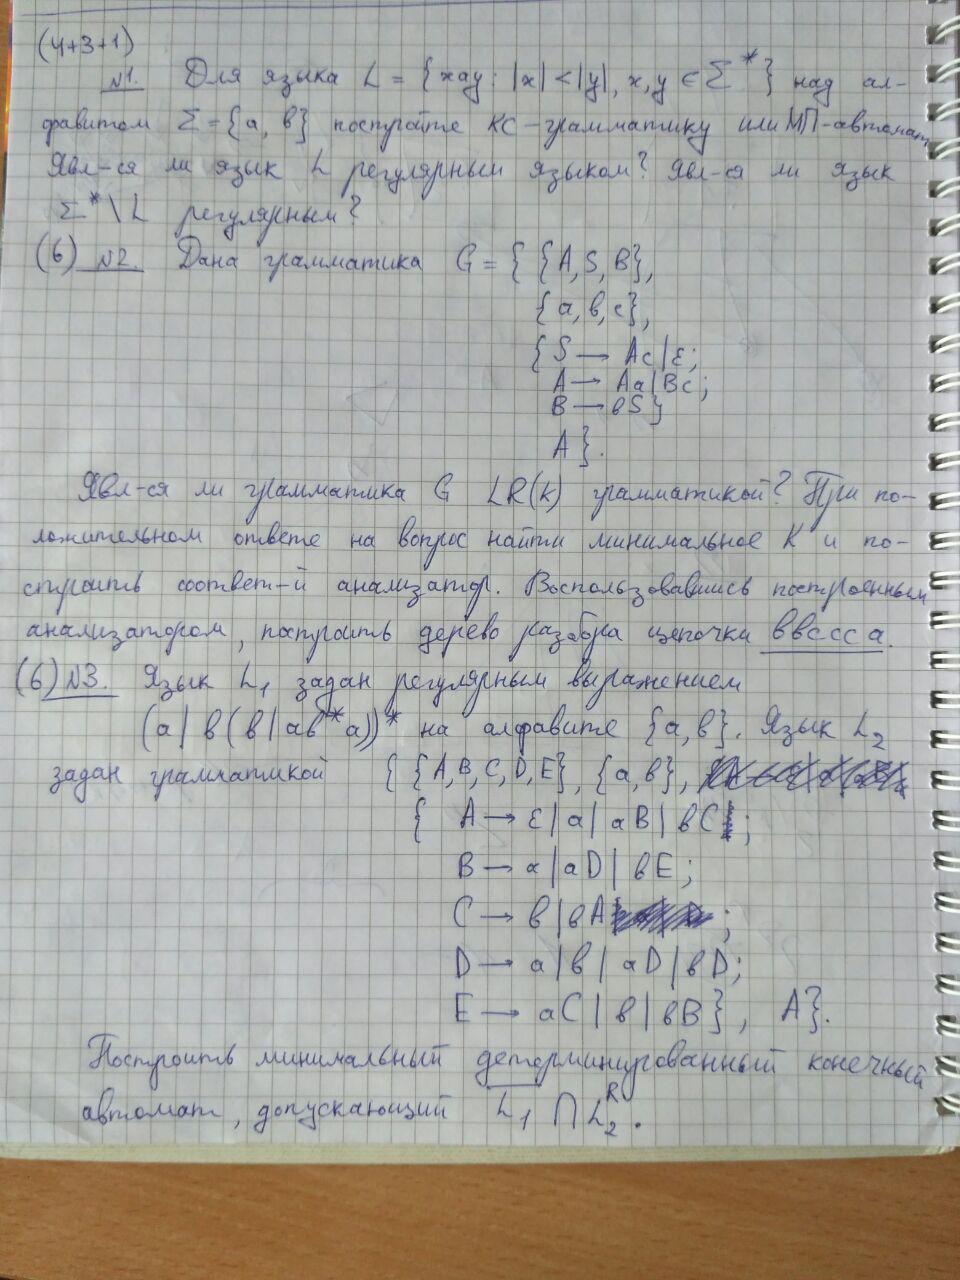 (4+3+1)
№1. Для языка L = {xay: |x| < |y|, x, y ∈ Σ*} над ал-
фавитом Σ = {a, b} постройте КС-грамматику или МП-автомат,
Явл-ся ли язык L регулярным языком? Явл-ся ли язык
Σ* \ L регулярным?
(6) №2. Дана грамматика G = { {A, S, B},
{a, b, c},
{S → Ac | ε;
A → Aa | Bc;
B → bS}
A}.
Явл-ся ли грамматика G LR(k) грамматикой? При по-
ложительном ответе на вопрос найти минимальное K и по-
строить соответ-й анализатор. Воспользовавшись построенным
анализатором, построить дерево разбора цепочки bbccca.
(6) №3. Язык L₁ задан регулярным выражением
(a | b(b | ab*a))* на алфавите {a, b}. Язык L₂
задан грамматикой { {A, B, C, D, E}, {a, b},
{ A → ε | a | aB | bC ;
B → a | aD | bE;
C → b | bA ;
D → a | b | aD | bD;
E → aC | b | bB} , A}.
Построить минимальный детерминированный конечный
автомат, допускающий L₁ ∩ L₂ᴿ.